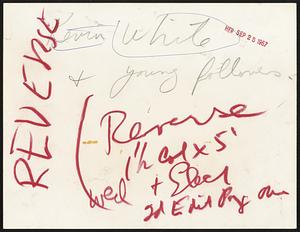 REVERSE
Kevin White
HER SEP 25 1967
+ young followers.
Reverse
1 1/2 col x 5"
wed + Sled
2d Edit Pg One